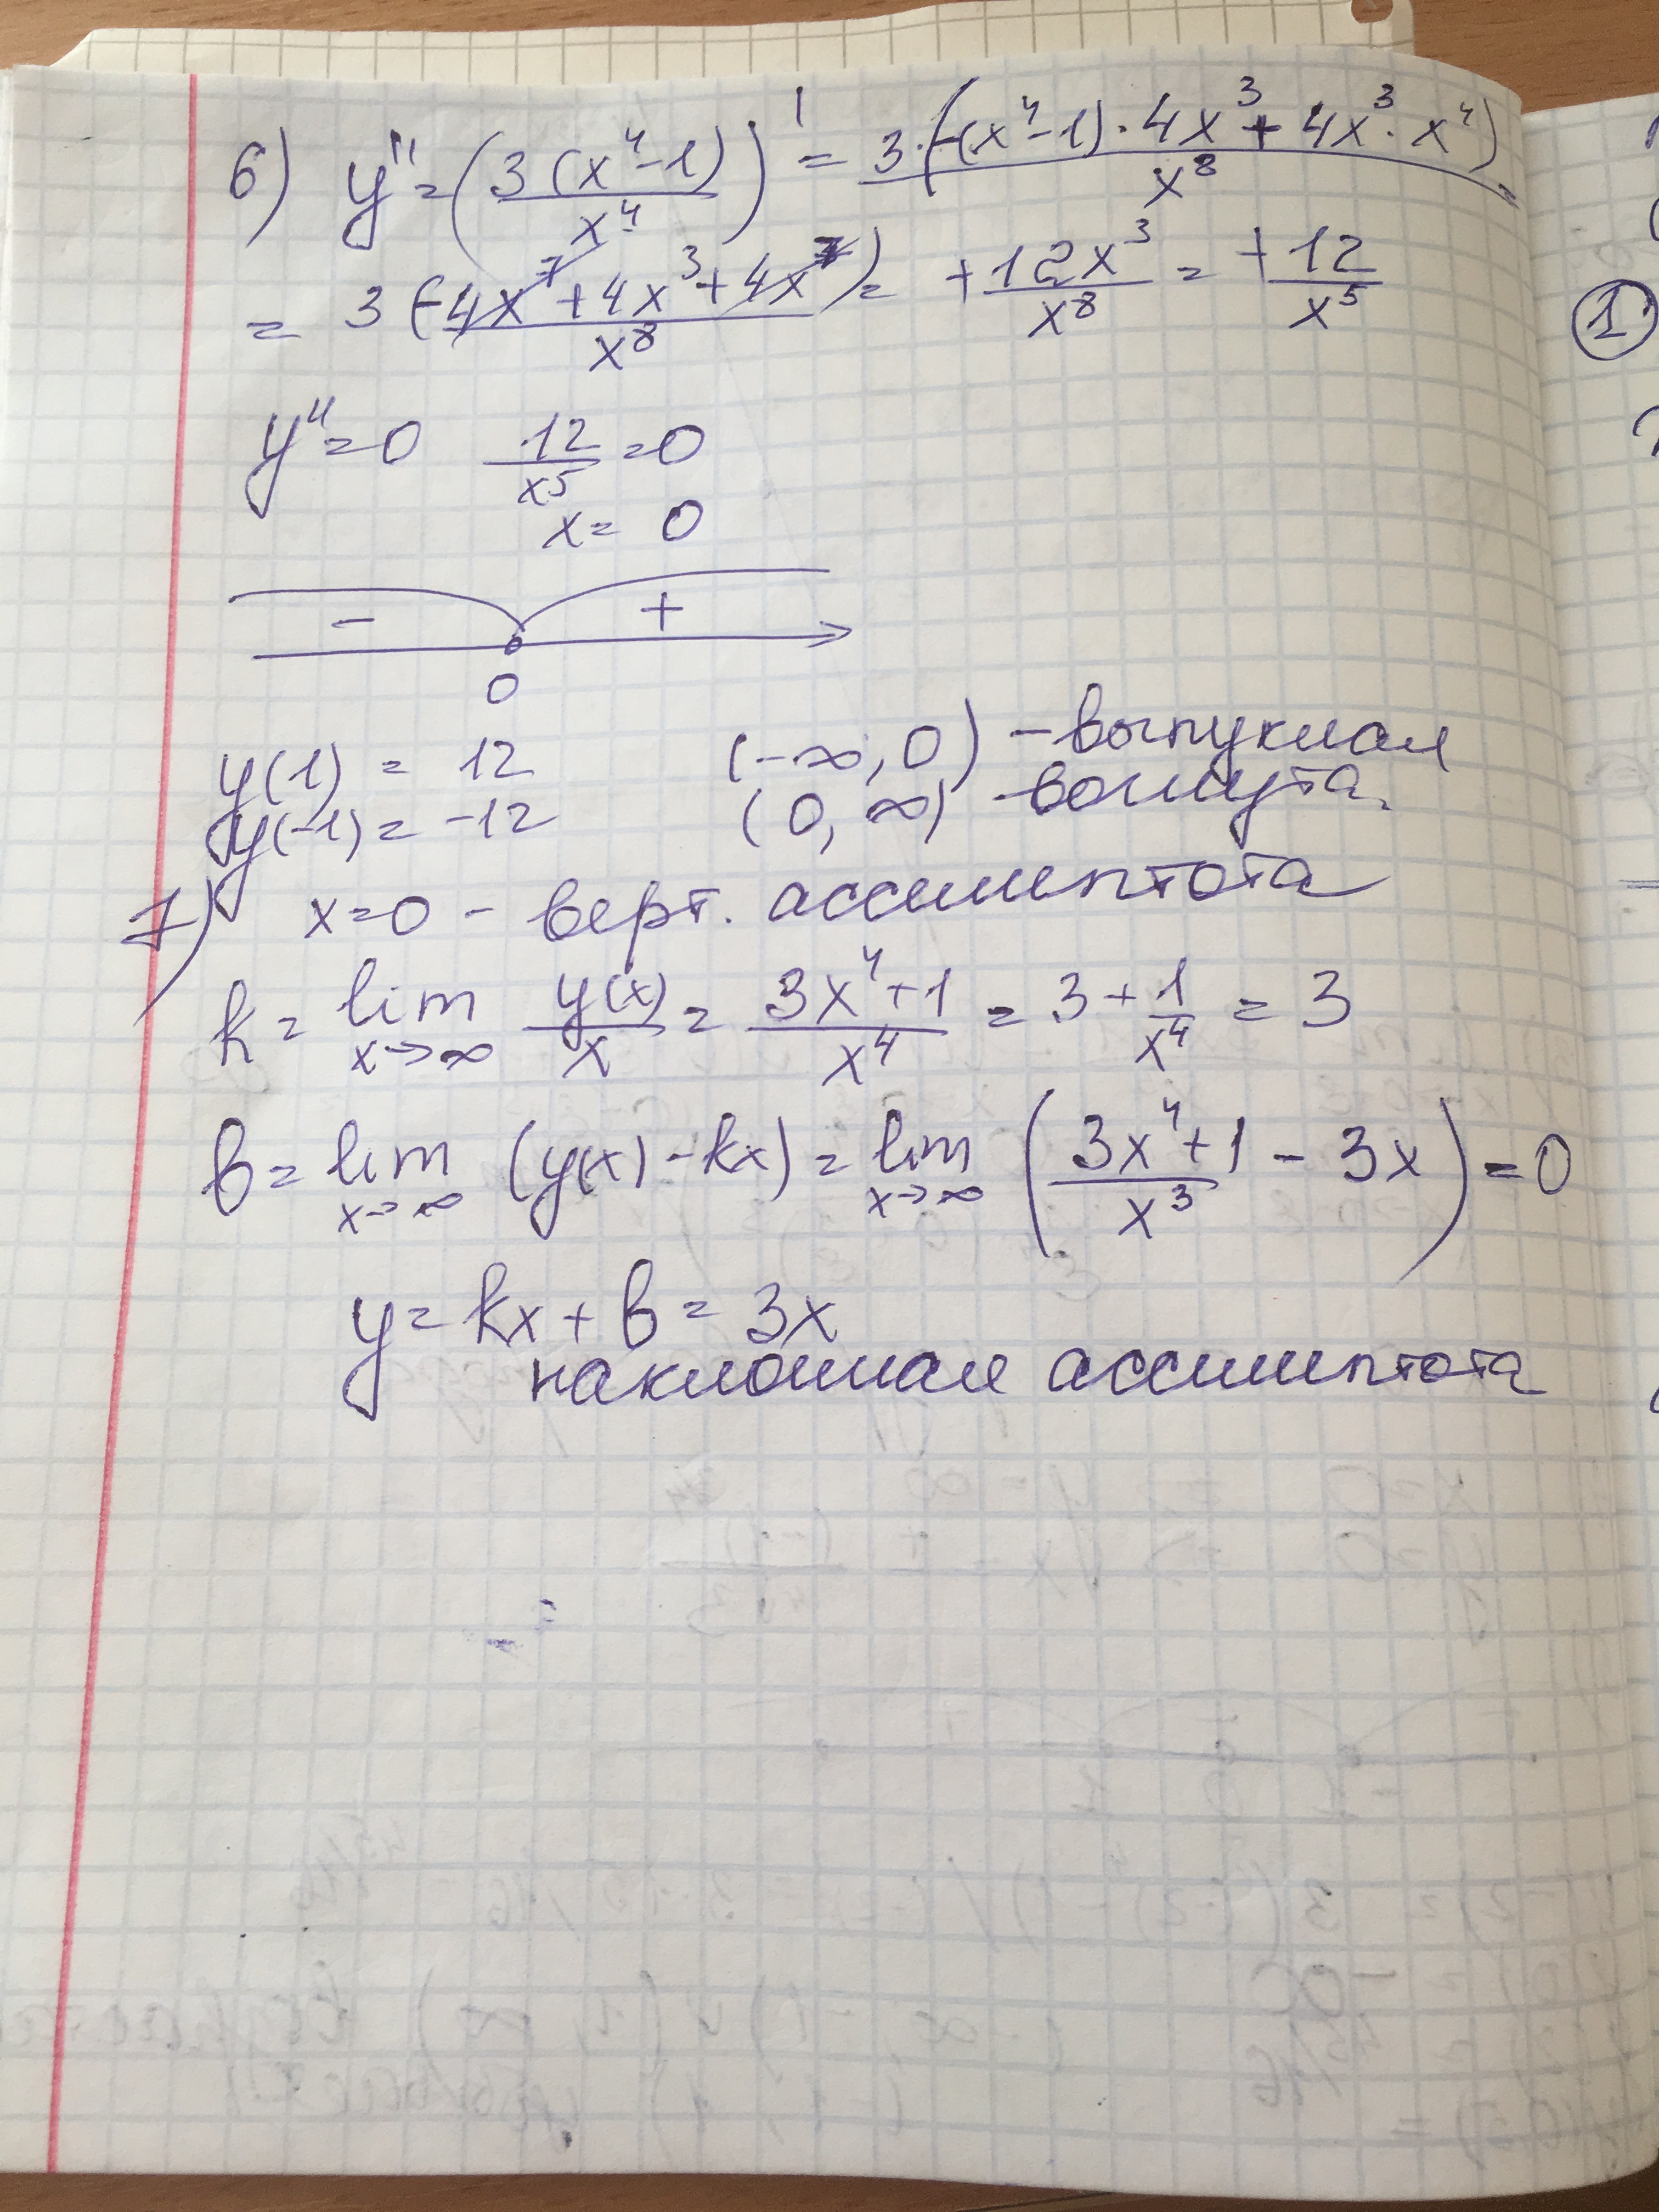 6) y'' = (3(x⁴-1)/x⁴)' = 3·(-(x⁴-1)·4x³ + 4x³·x⁴)/x⁸
= 3(-4x⁷+4x³+4x⁷)/x⁸ = +12x³/x⁸ = +12/x⁵
y''=0 12/x⁵ =0
x= 0
- +
0
y(1) = 12 (-∞, 0) - выпуклая
y(-1) = -12 (0, ∞) - вогнута.
7) x=0 - верт. ассимптота
k = lim x→∞ y(x)/x = 3x⁴+1/x⁴ = 3 + 1/x⁴ = 3
b = lim x→∞ (y(x) - kx) = lim x→∞ (3x⁴+1/x³ - 3x) = 0
y = kx + b = 3x
наклонная ассимптота
1